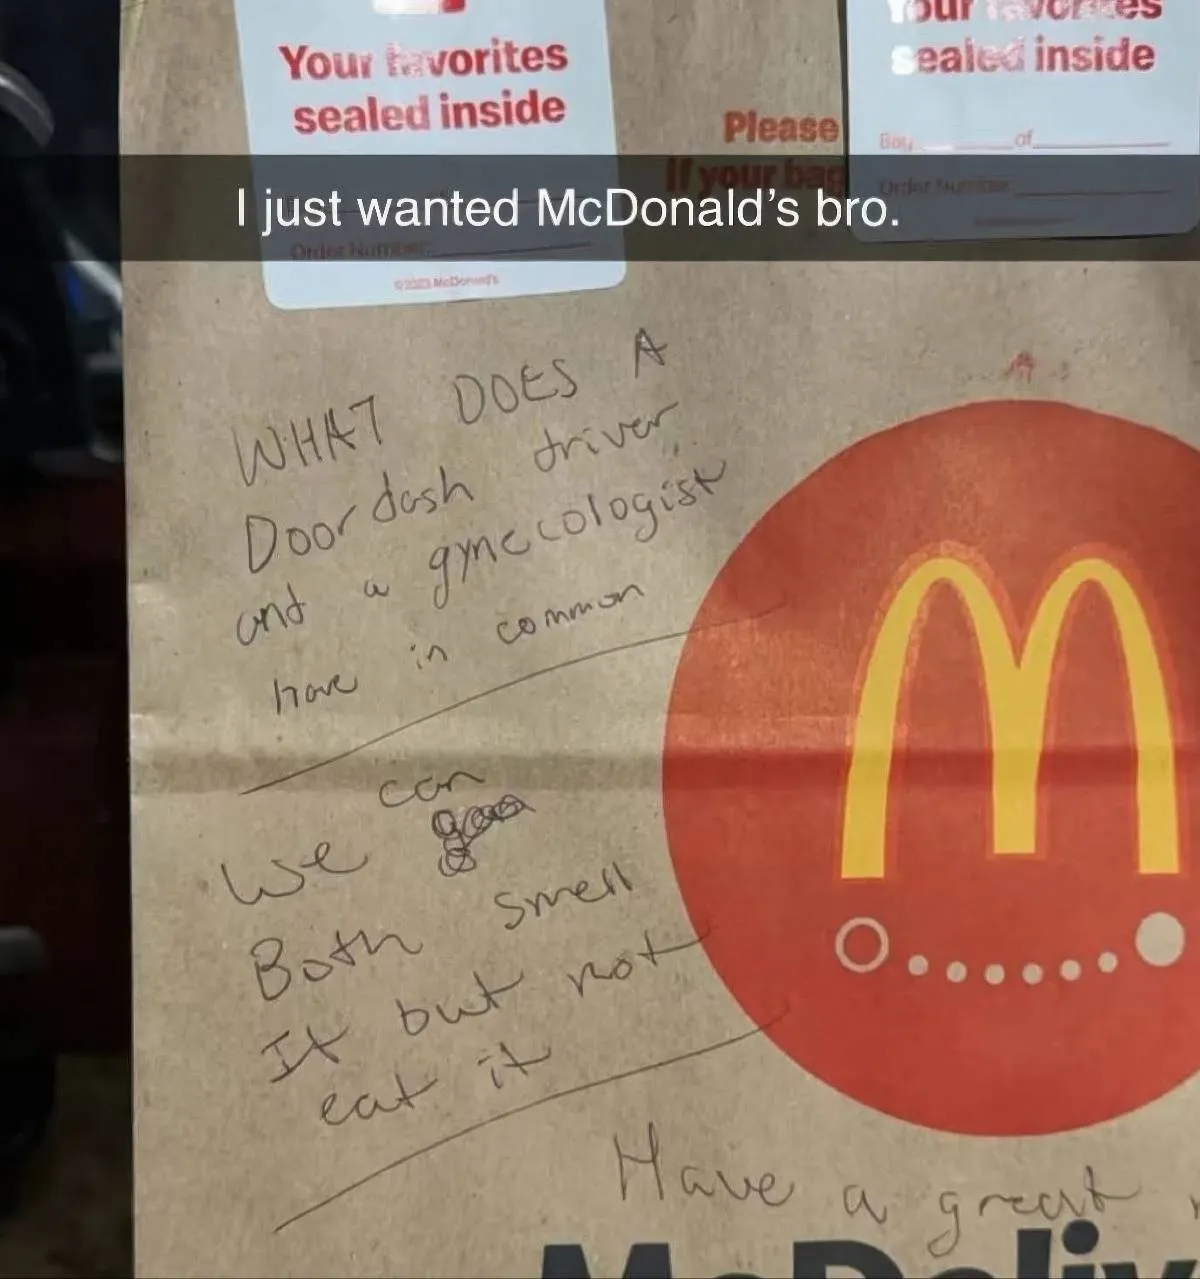 Your favorites
sealed inside
Your favorites
sealed inside
Please
Bag of
If your bag
Order Number:
I just wanted McDonald's bro.
Order Number:
©2023 McDonald's
WHAT DOES A
Doordash driver
and a gynecologist
have in common
can
We
Both smell
It but not
eat it
Have a great
McDeliv